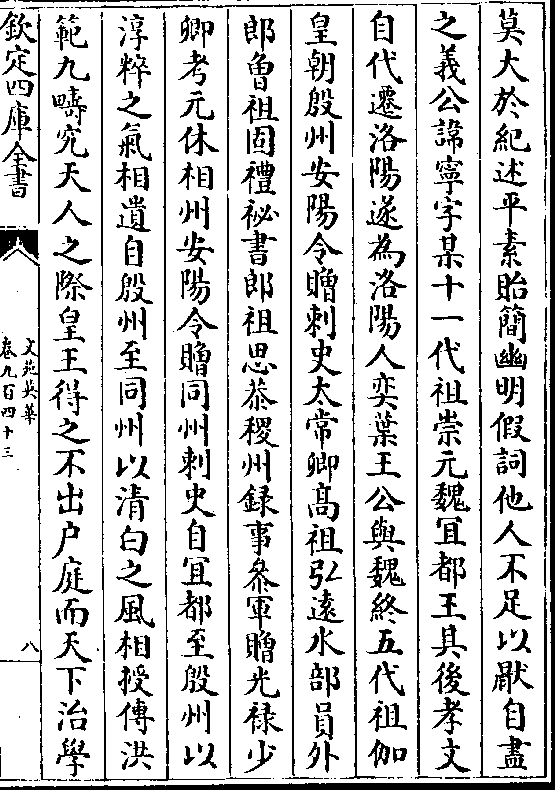 莫大於紀述平素貽簡幽明假詞他人不足以厭自盡
之義公諱寧字某十一代祖崇元魏宜都王具後孝文
自代遷洛陽遂為洛陽人奕葉王公與魏終五代祖伽
皇朝殷州安陽令贈刺史太常卿髙祖弘逺水部員外
郎魯祖固禮祕書郎祖思恭稷州録事叅軍贈光禄少
卿考元休相州安陽令贈同州刺史自宜都至殷州以
淳粹之氣相遺自殷州至同州以清白之風相授傳洪
範九疇究天人之際皇王得之不出户庭而天下治學
欽定四庫全書
文苑英華
卷九百四十三
八